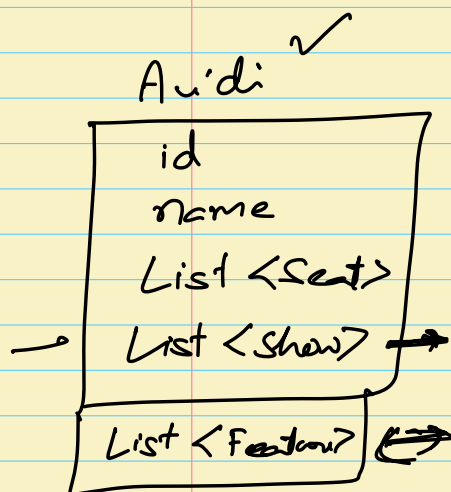 Audi
id
name
List <Seat>
List <show>
List <Feature>